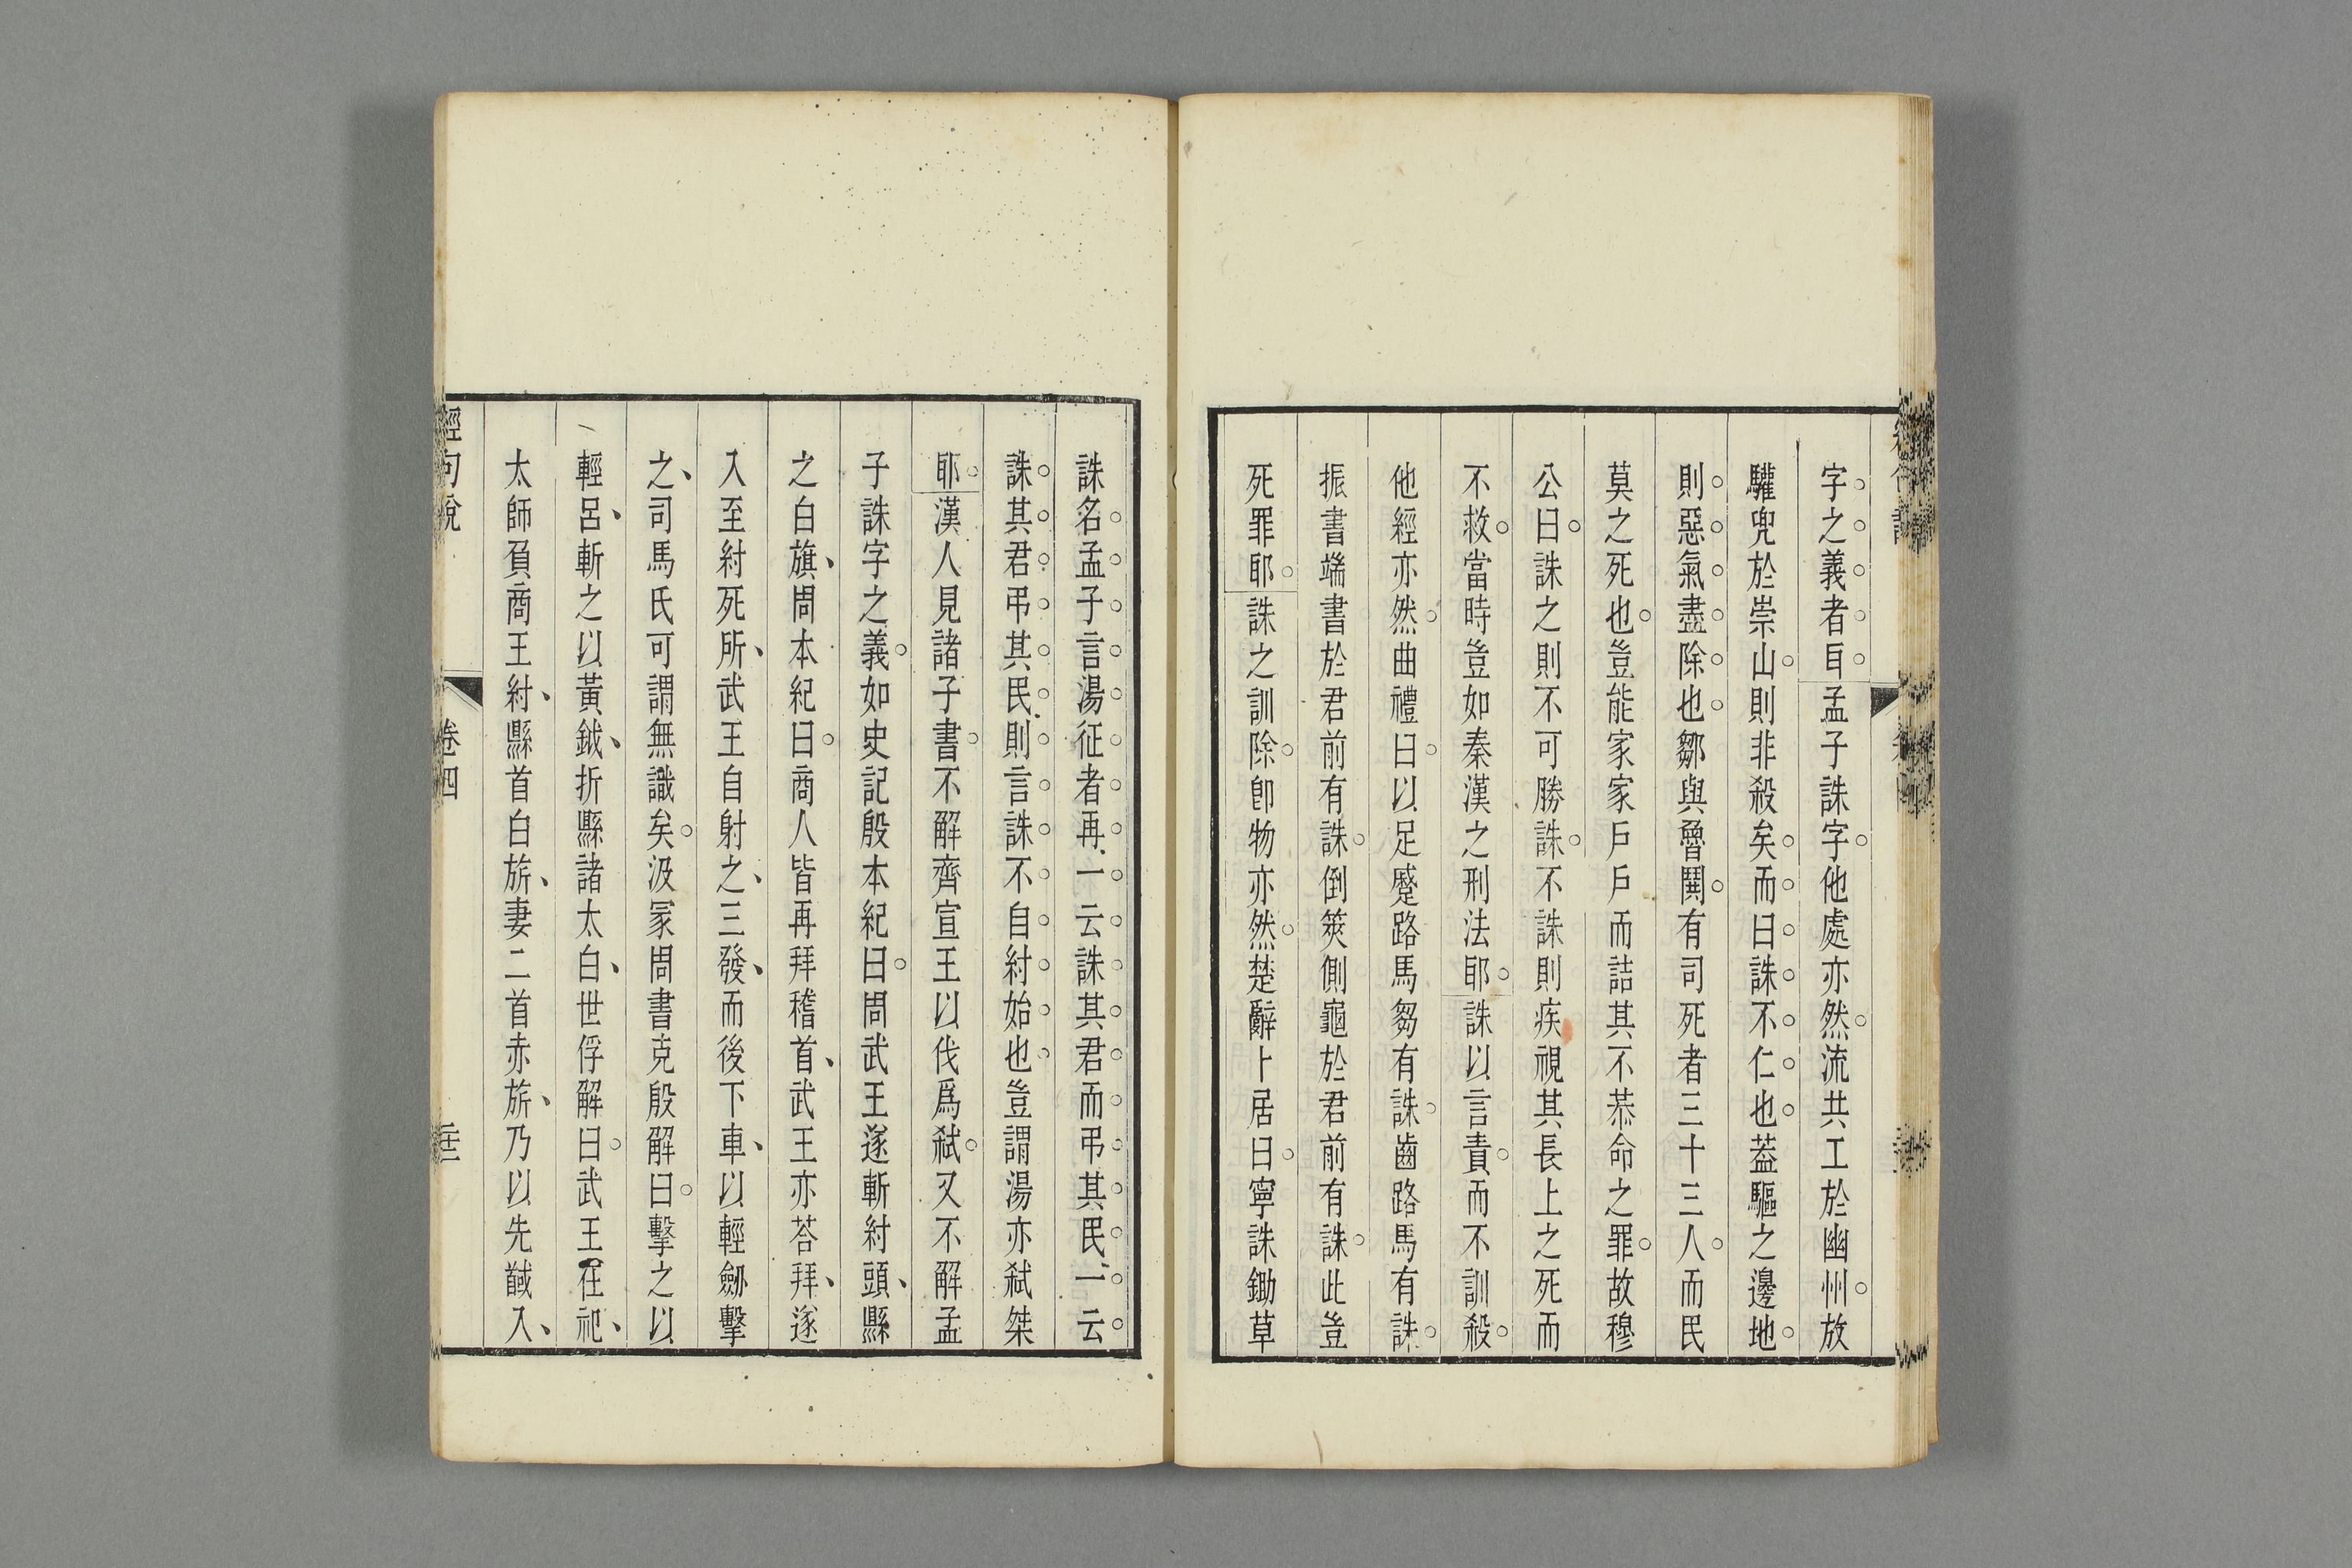 字之義者目孟子誅字他處亦然流共工於幽州放
驩兜於崇山則非殺矣而曰誅不仁也葢驅之邊地
則惡氣盡除也鄒與魯鬨有司死者三十三人而民
莫之死也豈能家家戶戶而詰其不恭命之罪故穆
公曰誅之則不可勝誅不誅則疾視其長上之死而
不救當時豈如秦漢之刑法耶誅以言責而不訓殺
他經亦然曲禮曰以足蹙路馬芻有誅齒路馬有誅
振書端書於君前有誅倒筴側龜於君前有誅此豈
死罪耶誅之訓除卽物亦然楚辭卜居曰寧誅鋤草
誅名孟子言湯征者再一云誅其君而弔其民一云
誅其君弔其民則言誅不自紂始也豈謂湯亦弒桀
耶漢人見諸子書不解齊宣王以伐爲弒又不解孟
子誅字之義如史記殷本紀曰周武王遂斬紂頭縣
之白旗周本紀曰商人皆再拜稽首武王亦荅拜遂
入至紂死所武王自射之三發而後下車以輕劒擊
之司馬氏可謂無識矣汲冢周書克殷解曰擊之以
輕呂斬之以黃鉞折縣諸太白世俘解曰武王在祀
太師負商王紂縣首白旂妻二首赤旂乃以先馘入
經句說 卷四